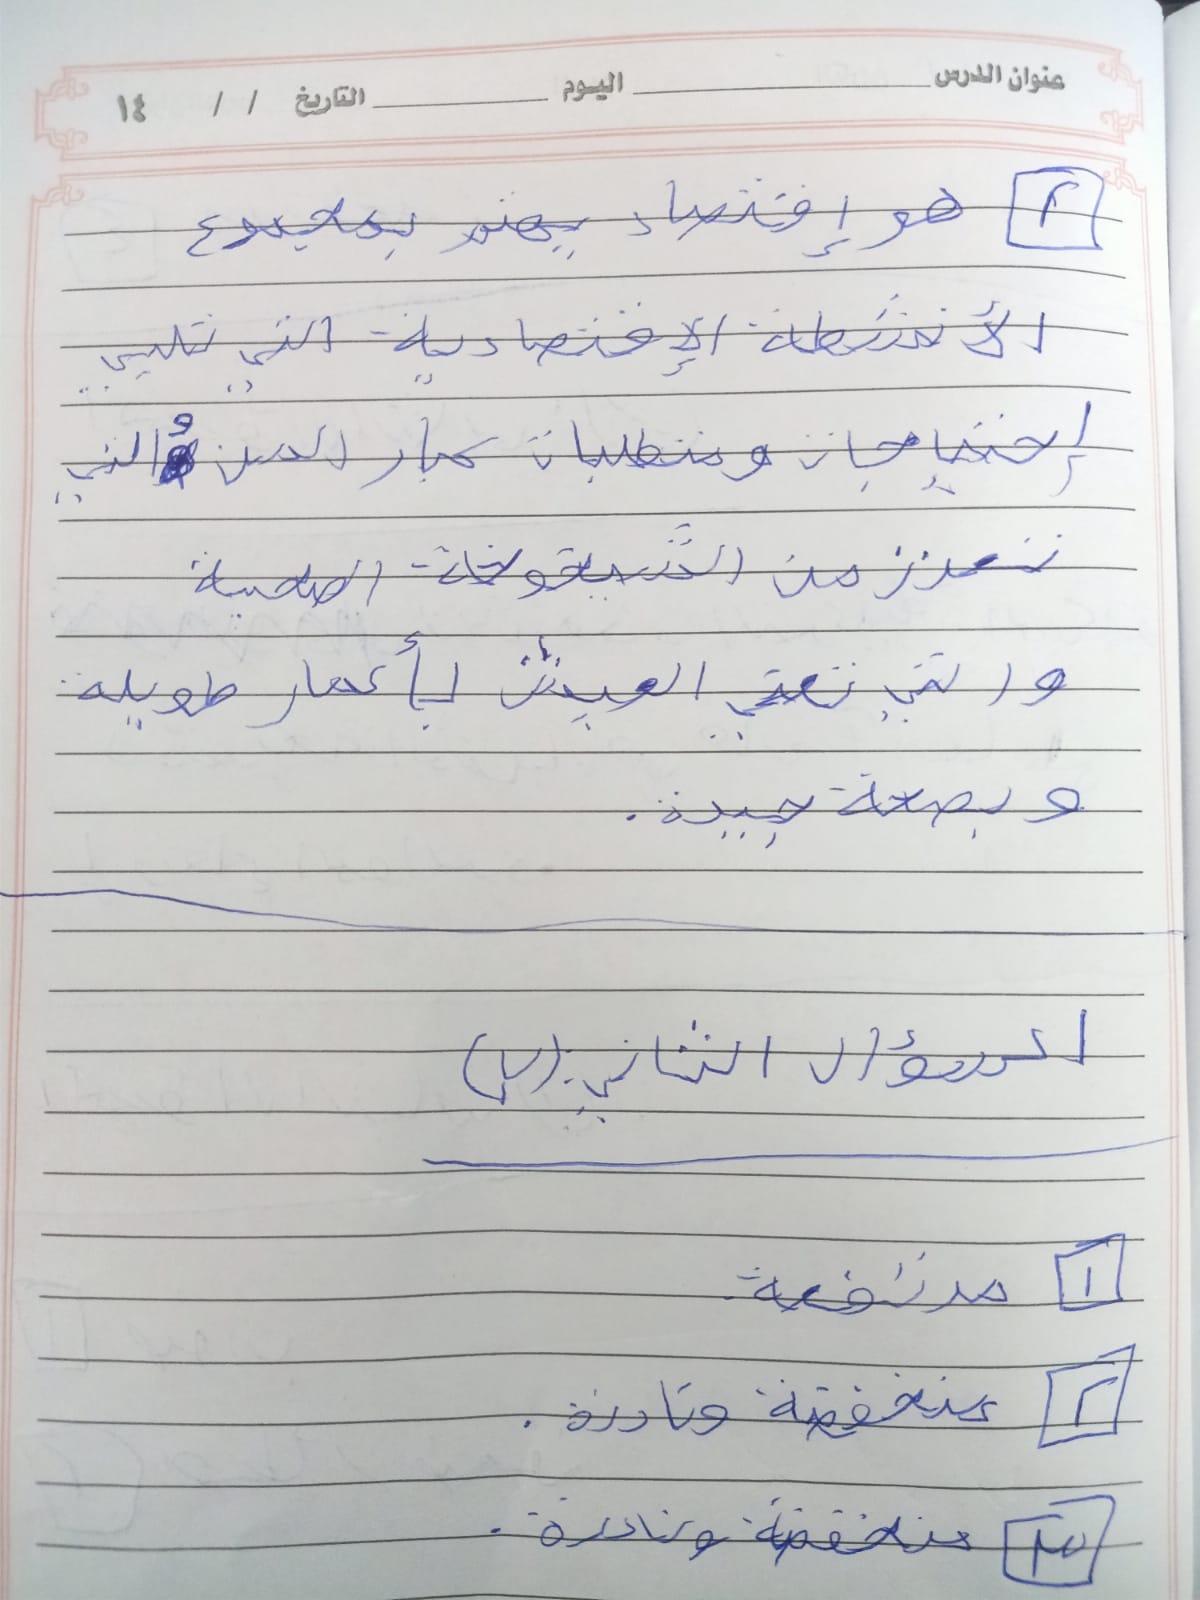 عنوان الدرس اليوم التاريخ / / ١٤
٢ هو إقتصاد يهتم بمجموع
الأنشطة الإقتصادية التي تلبي
إحتياجات ومتطلبات كبار السن والتي
تعزز من الشيخوخة الصحية
والتي تعني العيش لأعمار طويلة
وبصحة جيدة.
السؤال الثاني: (ب)
١ مرتفعة
٢ منخفضة ونادرة.
٣ منخفضة ونادرة.